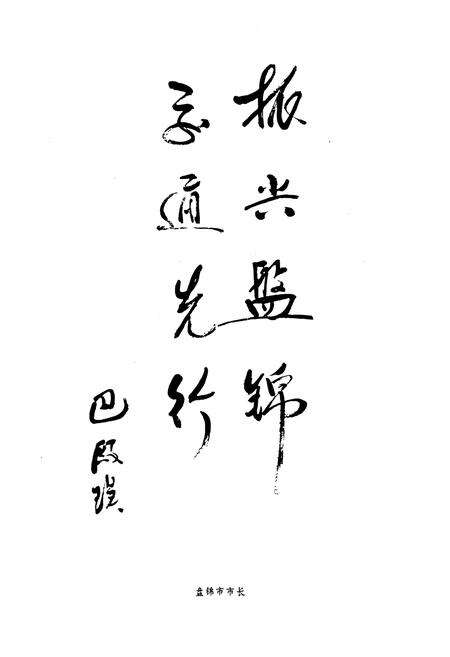 振兴盘锦
交通先行
盘锦市市长